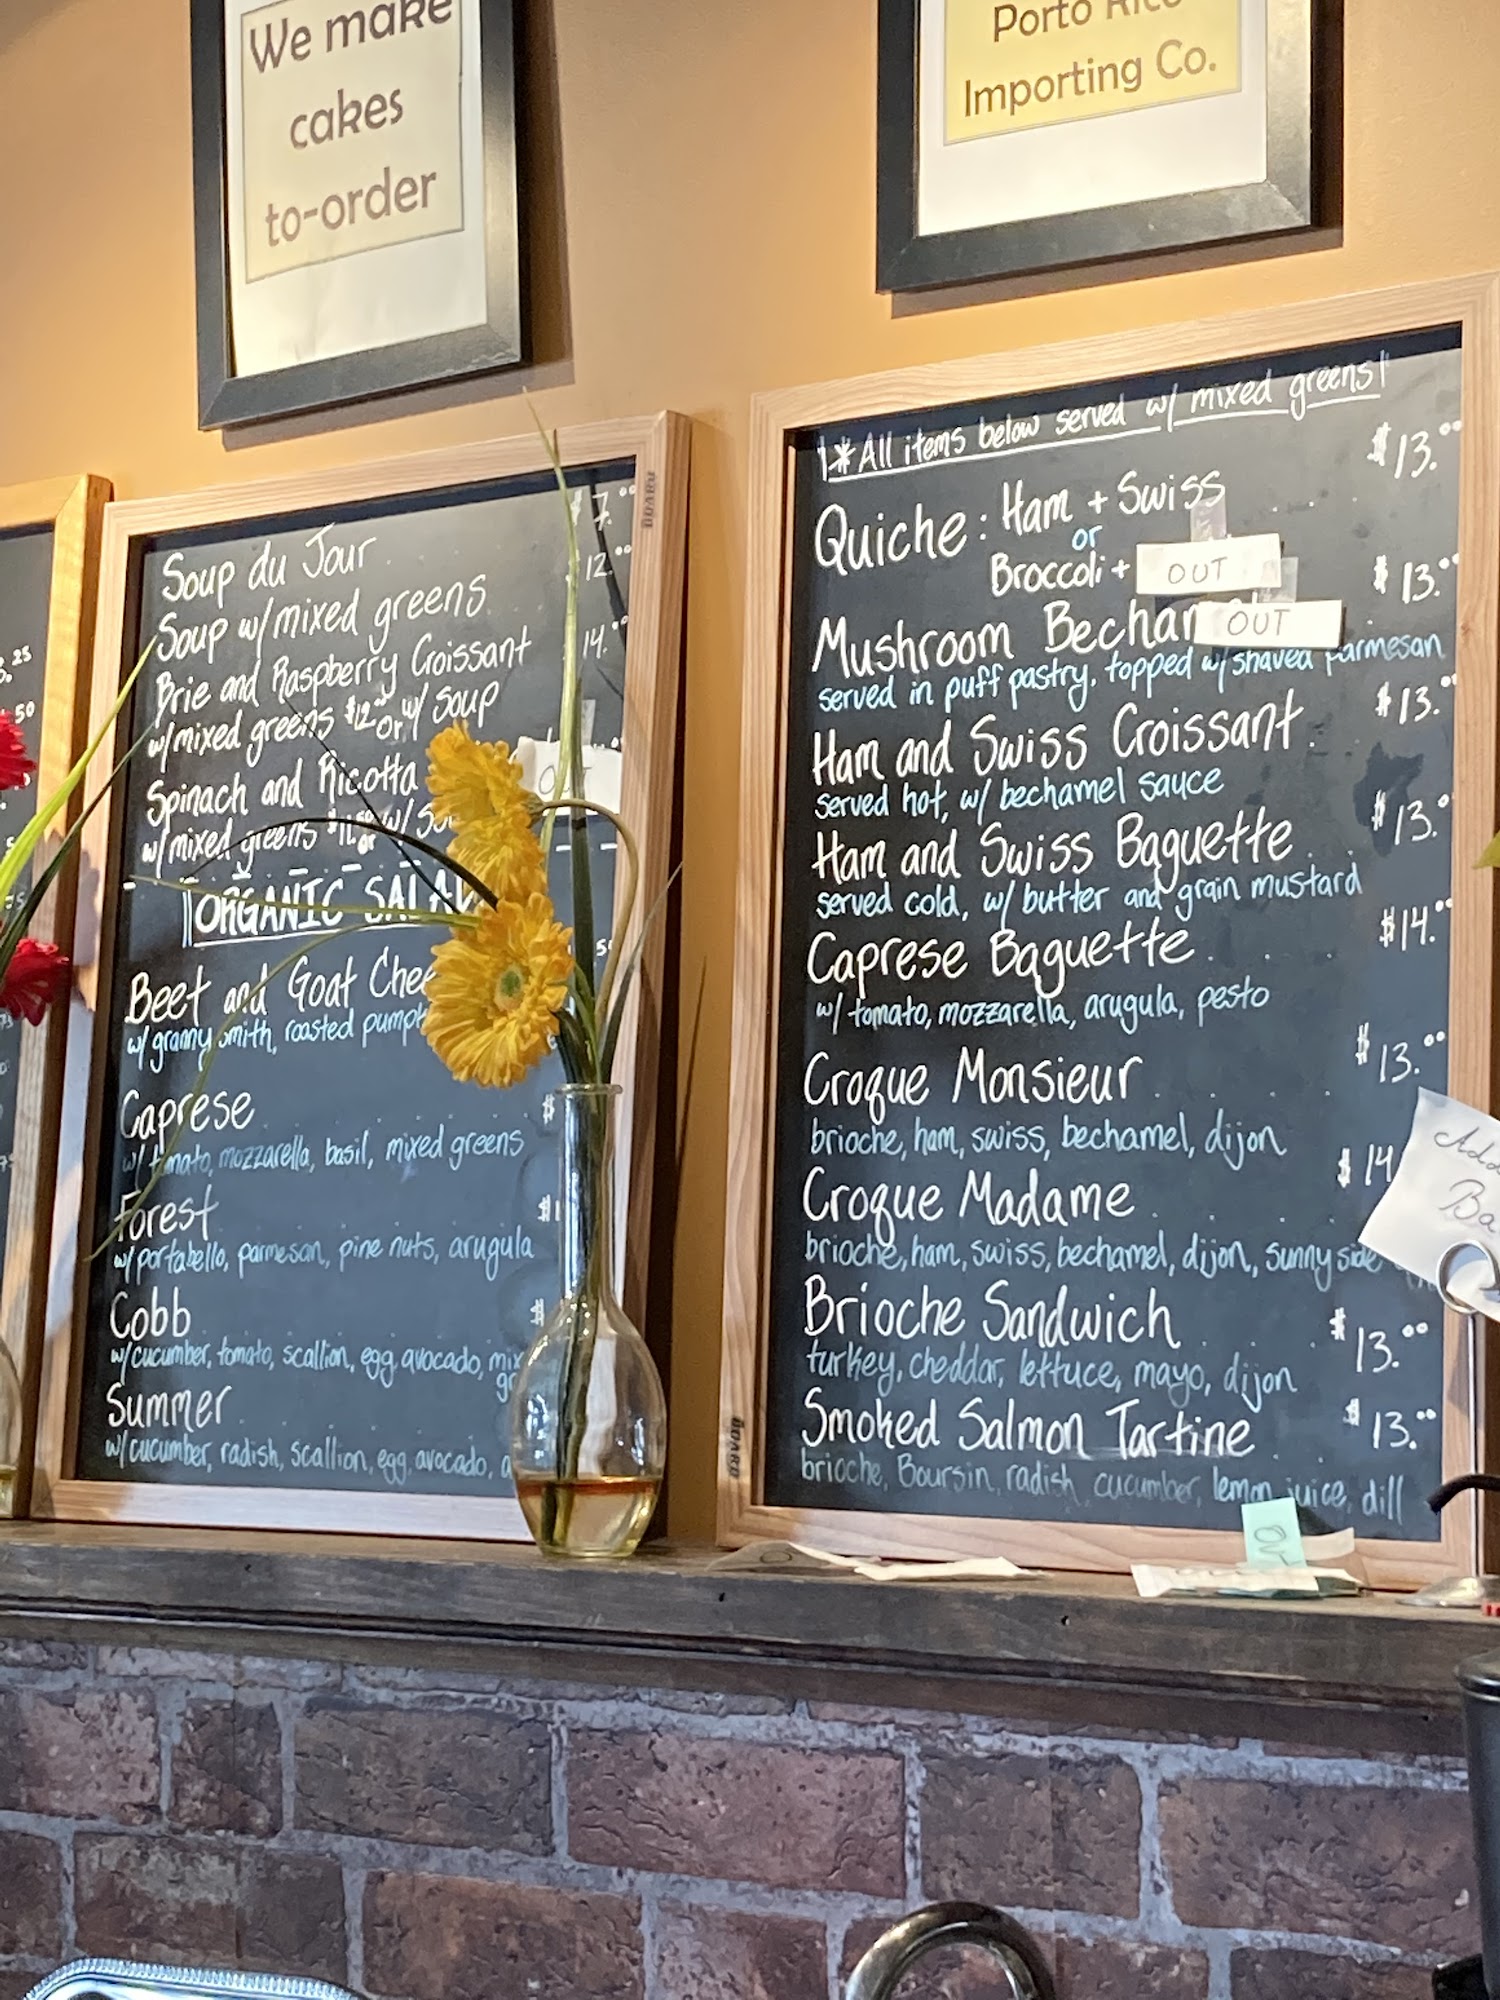 We make
cakes
to-order
Porto Rico
Importing Co.
Soup du Jour $7.00
Soup w/mixed greens 12.00
Brie and Raspberry Croissant 14.00
w/mixed greens $12.00 or w/ soup
Spinach and Ricotta
w/mixed greens or w/
ORGANIC
Beet and Goat
w/granny smith, roasted
Caprese $
w/ tomato, mozzarella, basil, mixed greens
Forest
w/portabello, parmesan, pine nuts, arugula
Cobb $
w/cucumber, tomato, scallion, egg, avocado,
Summer
w/cucumber, radish, scallion, egg, avocado,
BOARD
*All items below served w/ mixed greens!
Quiche: Ham + Swiss $13.00
or
Broccoli + OUT
Mushroom OUT $13.00
served in puff pastry, topped w/ shaved parmesan
Ham and Swiss Croissant $13.00
served hot, w/ bechamel sauce
Ham and Swiss Baguette $13.00
served cold, w/ butter and grain mustard
Caprese Baguette $14.00
w/ tomato, mozzarella, arugula, pesto
Croque Monsieur $13.00
brioche, ham, swiss, bechamel, dijon
Croque Madame $14
brioche, ham, swiss, bechamel, dijon, sunny side
Brioche Sandwich $13.00
turkey, cheddar, lettuce, mayo, dijon
Smoked Salmon Tartine $13.00
brioche, Boursin, radish, cucumber, lemon juice, dill
BOARD